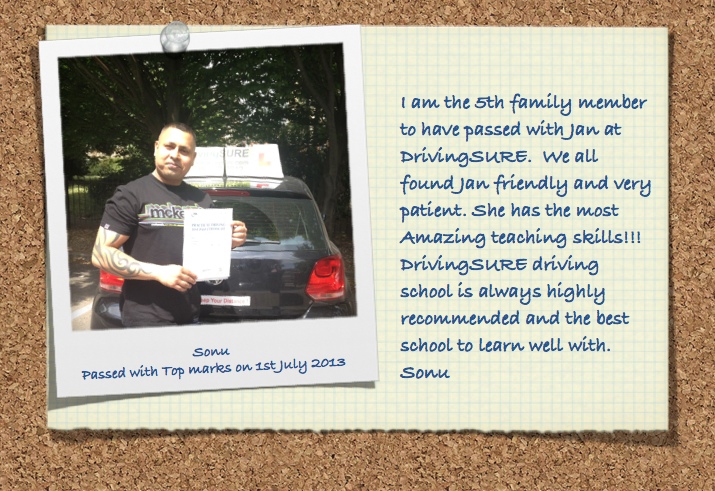 SURE
Sonu
Passed with Top marks on 1st July 2013
I am the 5th family member
to have passed with Jan at
DrivingSURE. We all
found Jan friendly and very
patient. She has the most
Amazing teaching skills!!!
DrivingSURE driving
school is always highly
recommended and the best
school to learn well with.
Sonu